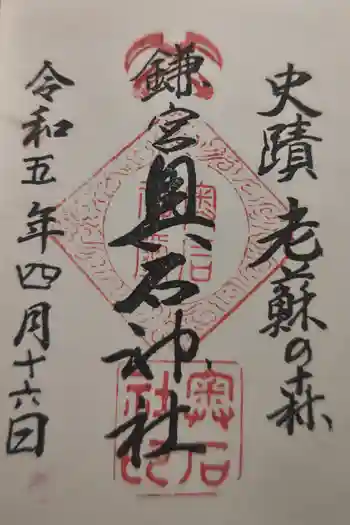 史蹟 老蘇の森
鎌宮 奥石神社
令和五年四月十六日
奥石
社印